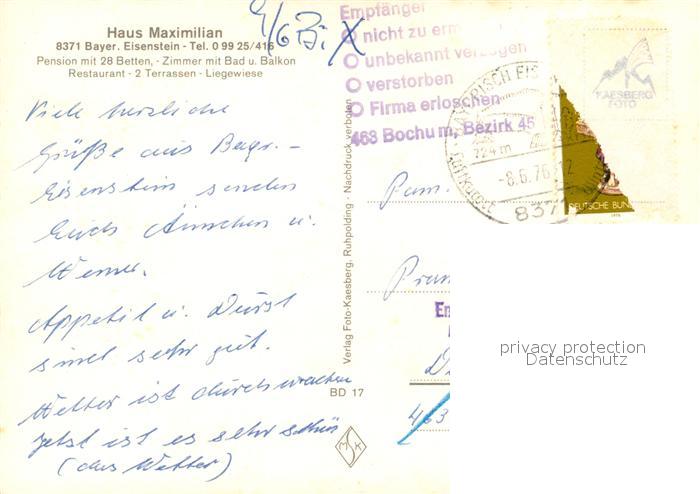 Haus Maximilian
8371 Bayer. Eisenstein - Tel. 0 99 25/416
Pension mit 28 Betten, - Zimmer mit Bad u. Balkon
Restaurant - 2 Terrassen - Liegewiese
Viele herzliche
Grüße aus Bayr. -
Eisenstein senden
Euch Ännchen u.
Werner.
Appetit u. Durst
sind sehr gut.
Wetter ist durchwachsen
jetzt ist es sehr schön
(das Wetter)
Verlag Foto-Kaesberg, Ruhpolding · Nachdruck verboten
BD 17
MSK
Empfänger
nicht zu erm
unbekannt verzogen
verstorben
Firma erloschen
463 Bochum, Bezirk 45
BAYERISCH EIS
724 m
-8.6.76 12
837
DEUTSCHE BUN
KAESBERG
FOTO
Fam.
463
privacy protection
Datenschutz